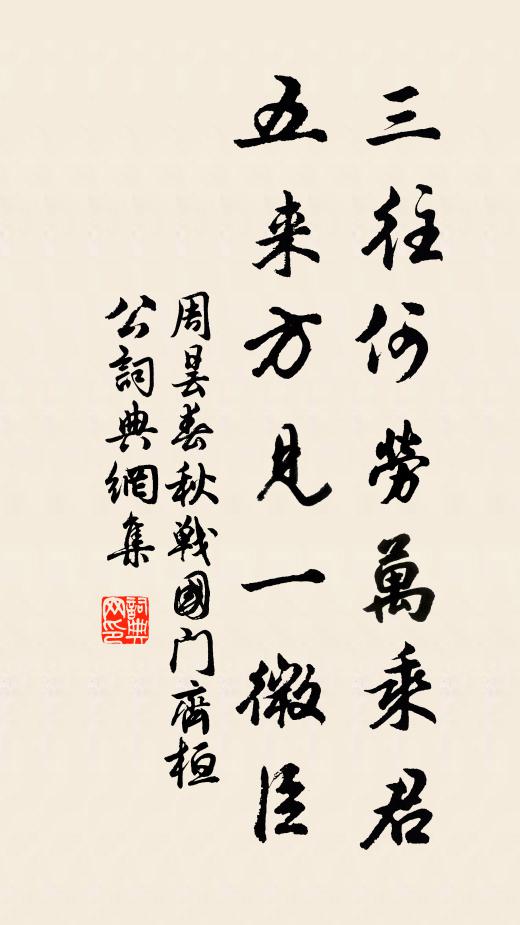 三往何勞萬乘君
五来方見一微臣
周昙春秋戰國门齊桓
公詞典網集
詞典网印